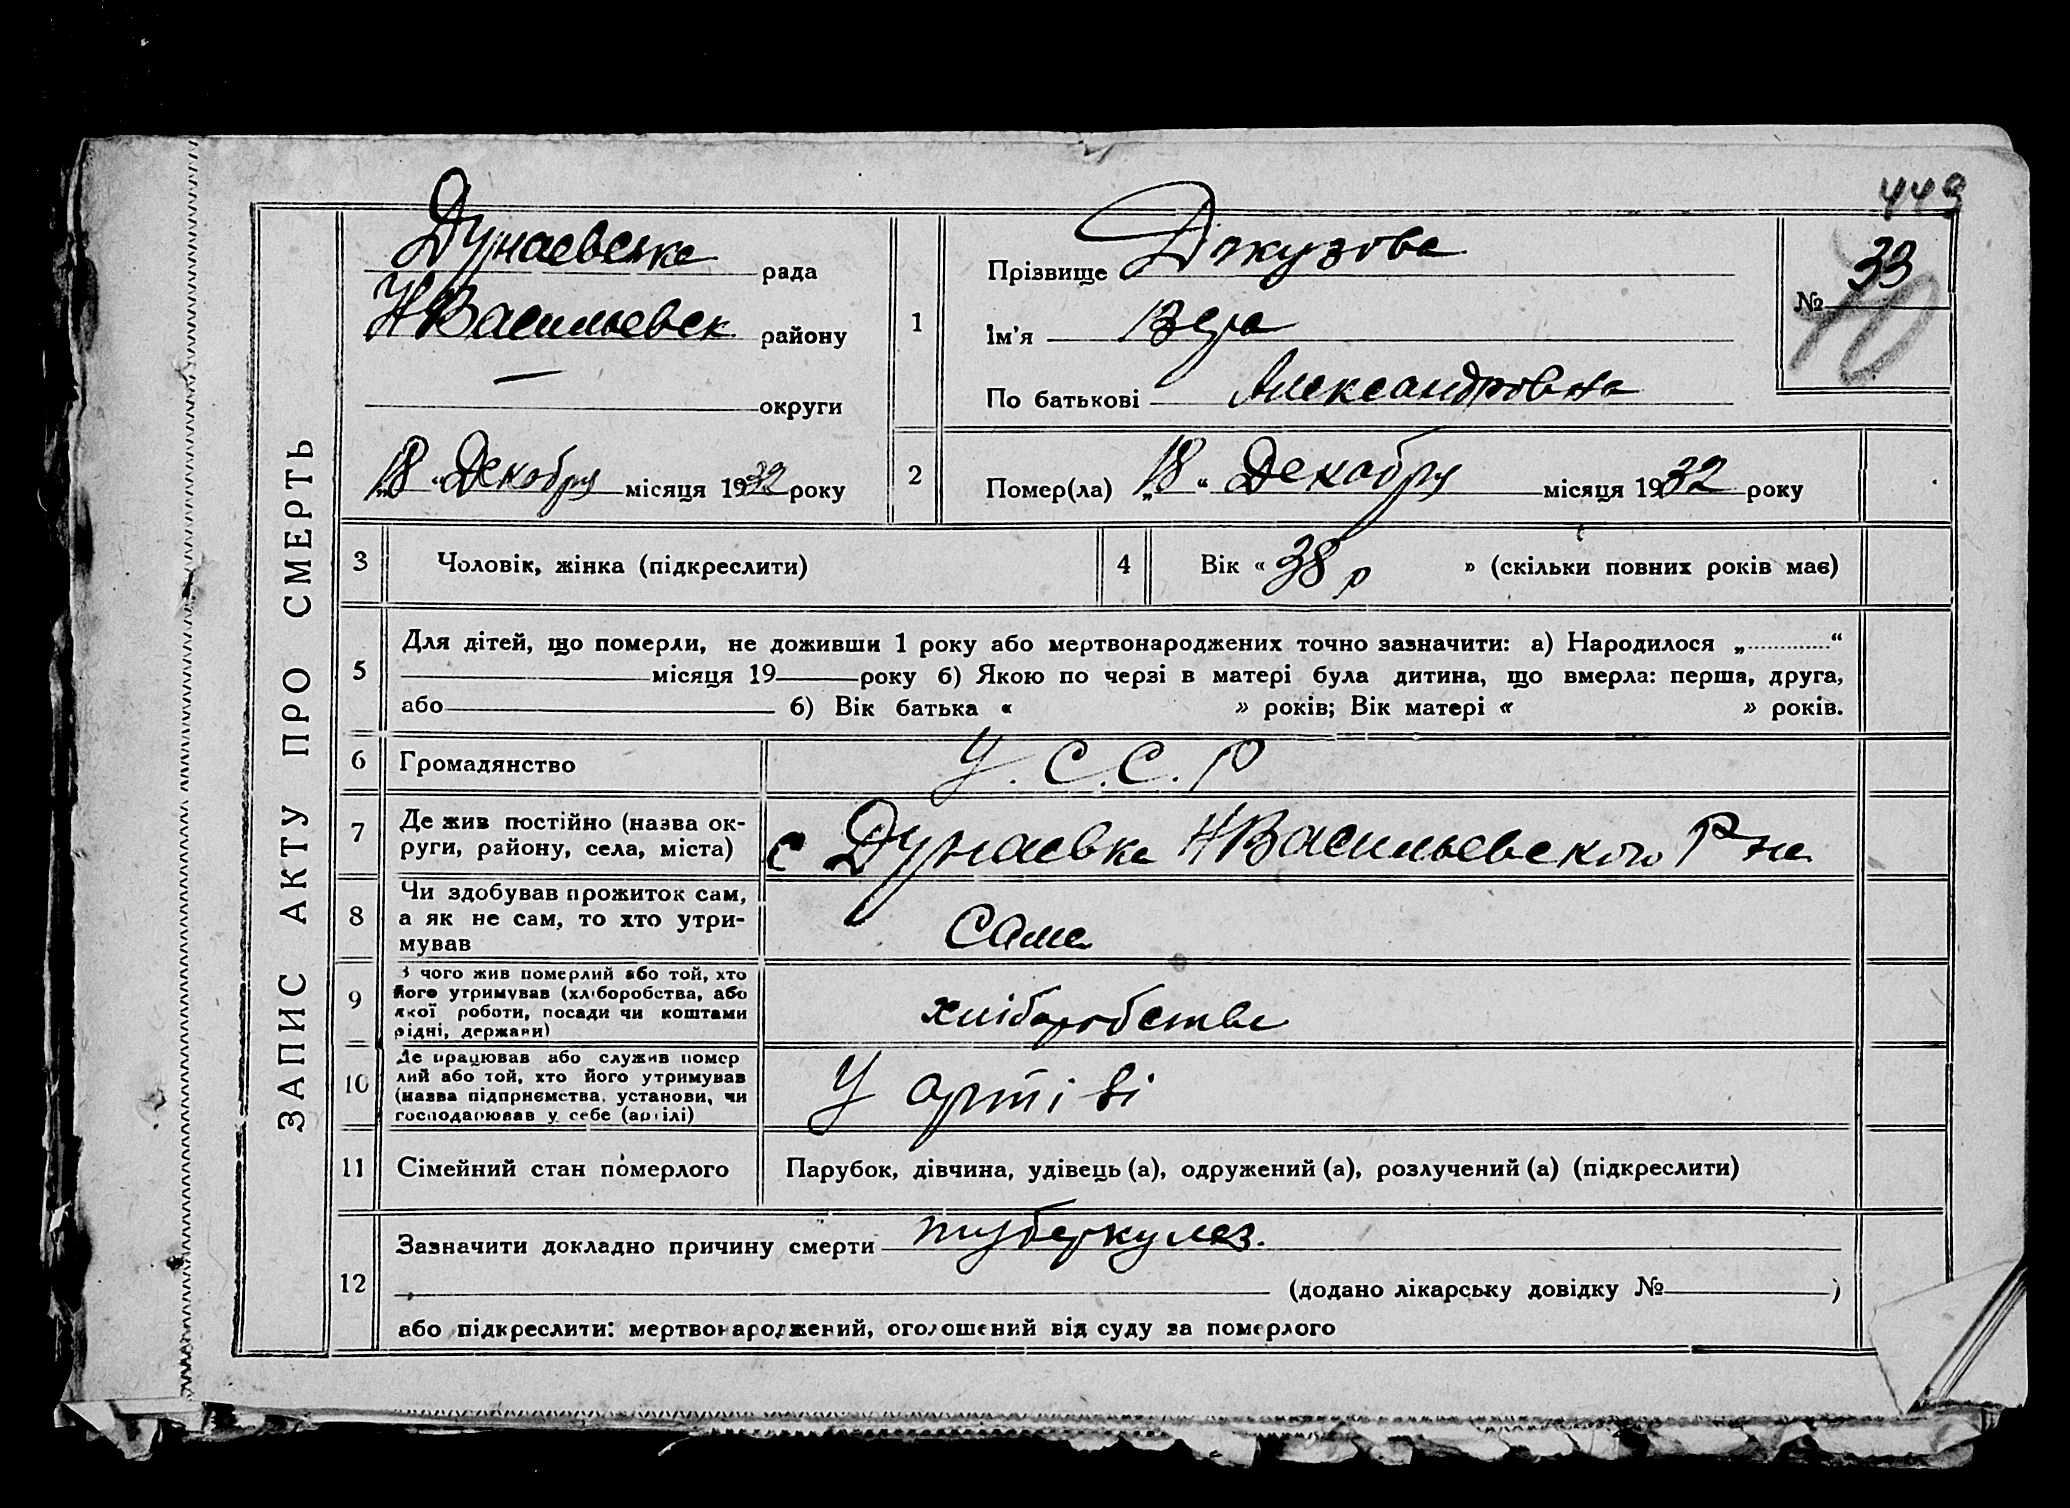 443
ЗАПИС АКТУ ПРО СМЕРТЬ
Дунаевська рада
Н Васильевск району
— округи
„18“ Декобря місяця 1932 року
1
Прізвище Докузова
Ім'я Вера
По батькові Александровна
№ 33
40
2
Помер(ла) „18“ Декабря місяця 1932 року
3 Чоловік, жінка (підкреслити)
4 Вік « 38 р » (скільки повних років має)
5
Для дітей, що померли, не доживши 1 року або мертвонароджених точно зазначити: а) Народилося „............“
місяця 19 року б) Якою по черзі в матері була дитина, що вмерла: перша, друга,
або б) Вік батька « » років; Вік матері « » років.
6 Громадянство У.С.С.Р
7 Де жив постійно (назва ок-
руги, району, села, міста) с Дунаевка НВасильевского Р на
8 Чи здобував прожиток сам,
а як не сам, то хто утри-
мував сама
9 З чого жив померлий або той, хто
його утримував (хліборобства, або
якої роботи, посади чи коштами
рідні, держави) хліборобства
10 Де працював або служив помер
лий або той, хто його утримував
(назва підприємства, установи, чи
господарював у себе (артілі) У артіві
11 Сімейний стан померлого Парубок, дівчина, удівець (а), одружений (а), розлучений (а) (підкреслити)
12 Зазначити докладно причину смерти туберкулез.
(додано лікарську довідку № )
або підкреслити: мертвонароджений, оголошений від суду за померлого